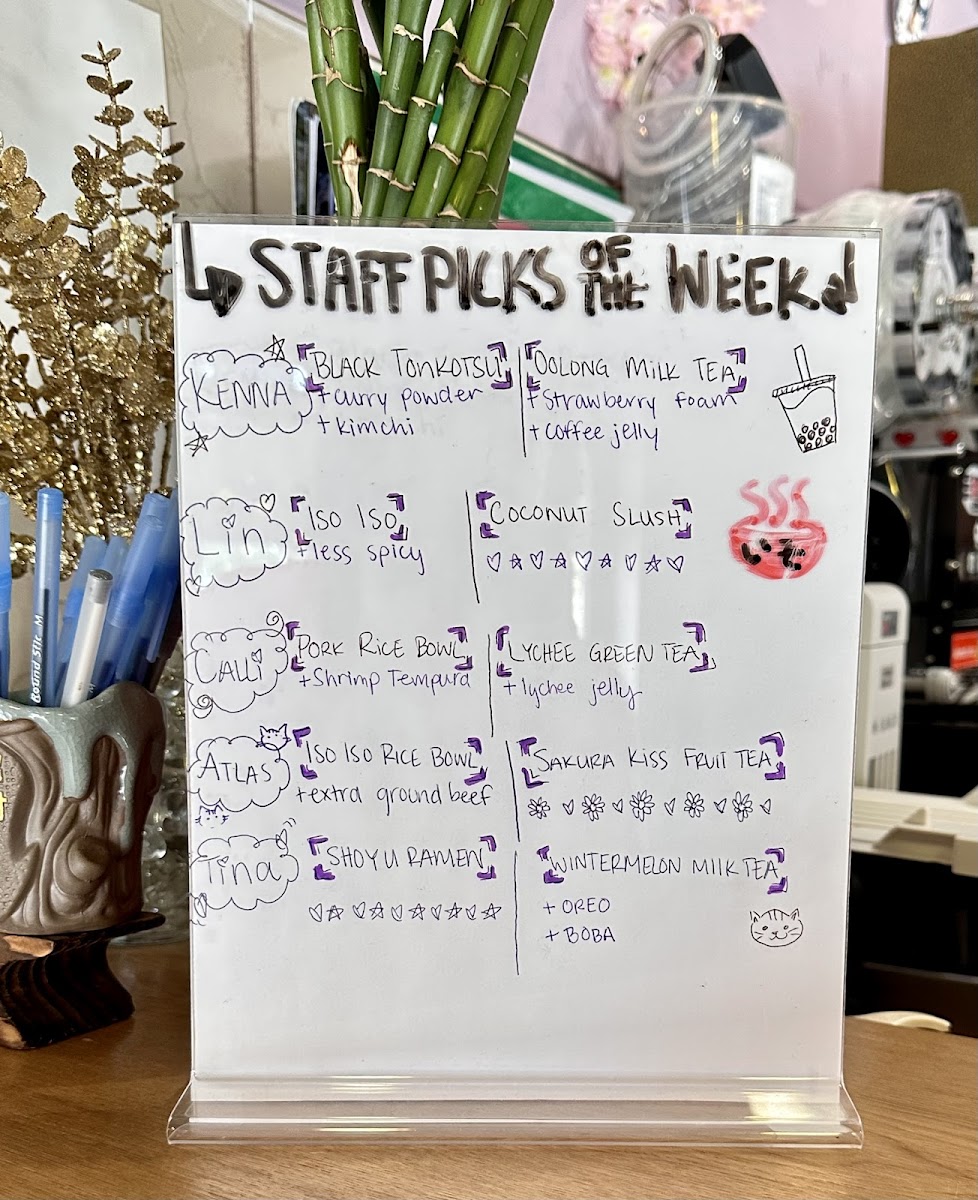 STAFF PICKS OF THE WEEK
KENNA
BLACK TONKOTSU
+ curry powder
+ kimchi
OOLONG MILK TEA
+ strawberry foam
+ coffee jelly
Lin
ISO ISO
+ less spicy
COCONUT SLUSH
いそ
CALLi
PORK RICE BOWL
+ Shrimp Tempura
LYCHEE GREEN TEA
+ lychee jelly
ATLAS
ISO ISO RICE BOWL
+ extra ground beef
SAKURA KISS FRUIT TEA
Tina
SHOYU RAMEN
WINTERMELON MILK TEA
+ OREO
+ BOBA
Round Stic M